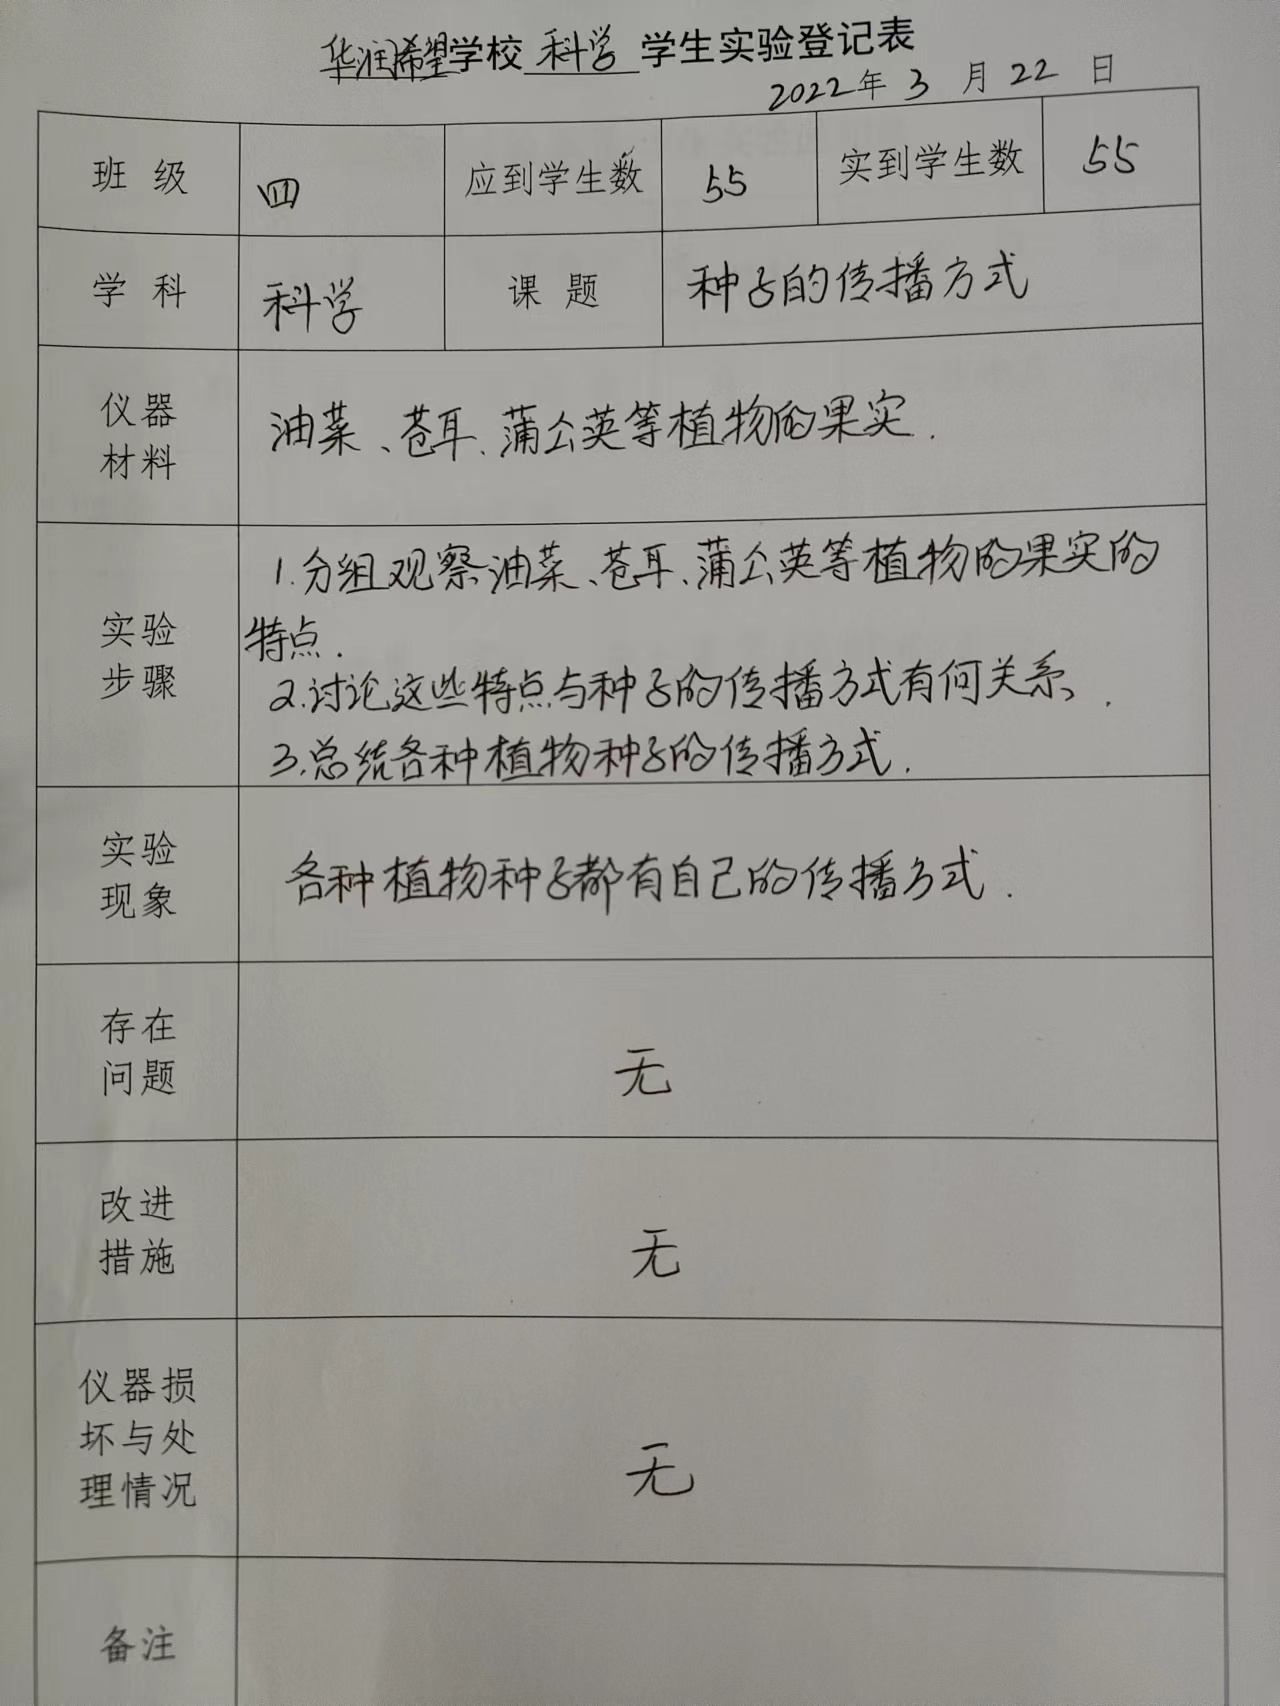 华润希望学校 科学 学生实验登记表
2022年 3 月 22 日
班 级 四 应到学生数 55 实到学生数 55
学 科 科学 课 题 种子的传播方式
仪器
材料
油菜、苍耳、蒲公英等植物的果实.
实验
步骤
1.分组观察油菜、苍耳、蒲公英等植物的果实的
特点.
2.讨论这些特点与种子的传播方式有何关系、.
3.总结各种植物种子的传播方式.
实验
现象
各种植物种子都有自己的传播方式.
存在
问题
无
改进
措施
无
仪器损
坏与处
理情况
无
备注